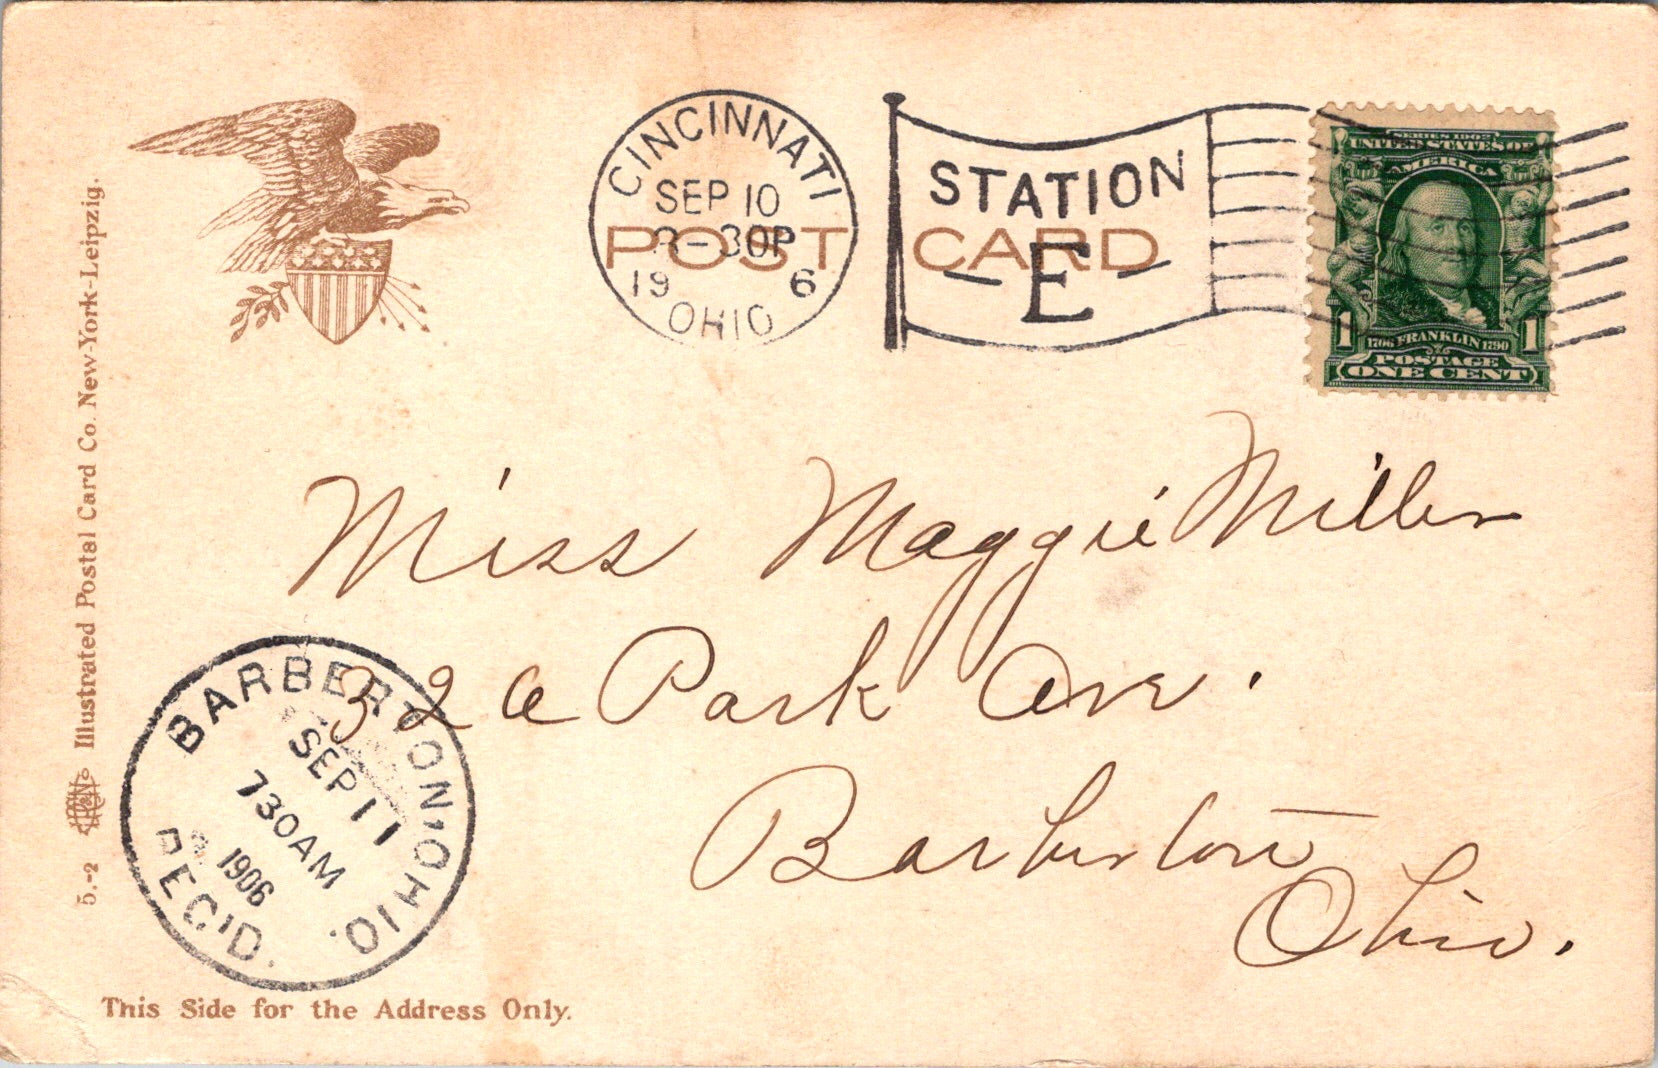 CINCINNATI
SEP 10
-30P
19 6
OHIO
STATION
- E -
POST CARD
SERIES 1902
UNITED STATES OF
AMERICA
1 1
1706 FRANKLIN 1790
POSTAGE
ONE CENT
Miss Maggie Miller
Park Ave.
Barberton
Ohio.
BARBERTON, OHIO.
SEP 11
730AM
1906
REC'D.
5.-2 Illustrated Postal Card Co. New-York-Leipzig.
This Side for the Address Only.